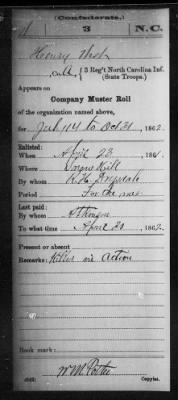 (Confederate.)
3 N.C.
Henry
3 Reg't North Carolina Inf.
(State Troops.)
Appears on
Company Muster Roll
of the organization named above,
for July 14 to Oct 31, 1862.
Enlisted:
When 23, 186
Where
By whom R. H. Drysdale
Period For the war
Last paid:
By whom
To what time April 30, 1862.
Present or absent
Remarks: Killed in Action
Book mark:
W M
(642) Copyist.